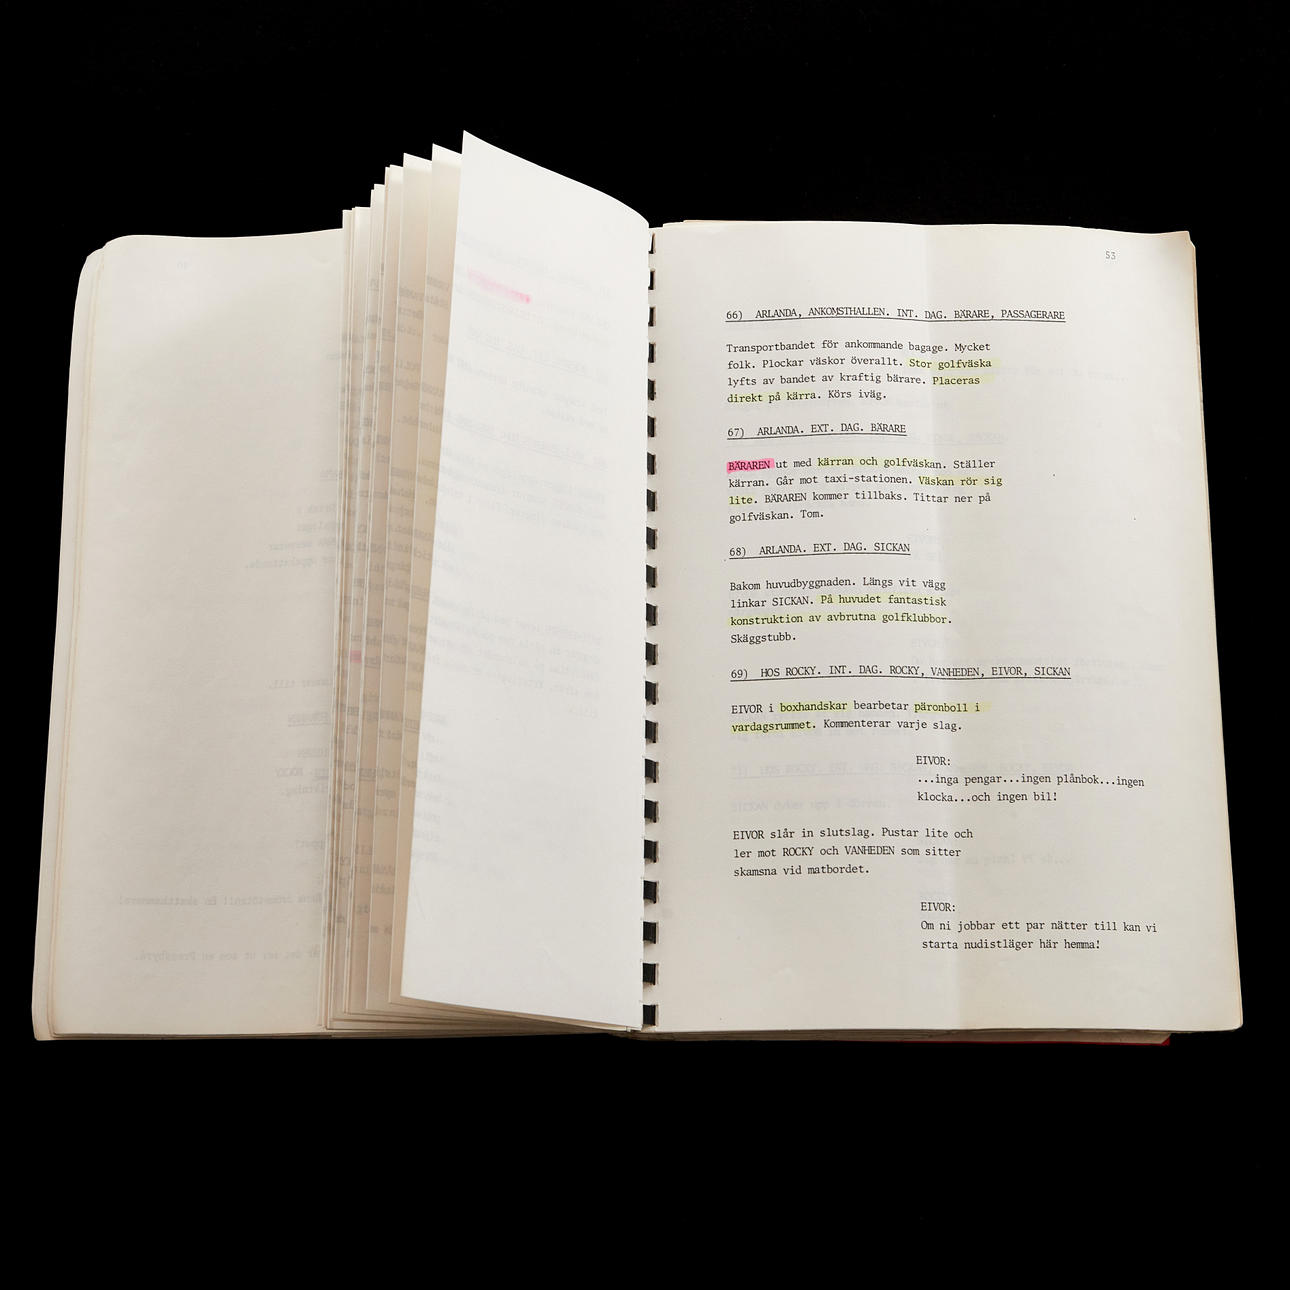 53
66) ARLANDA, ANKOMSTHALLEN. INT. DAG. BÄRARE, PASSAGERARE
Transportbandet för ankommande bagage. Mycket
folk. Plockar väskor överallt. Stor golfväska
lyfts av bandet av kraftig bärare. Placeras
direkt på kärra. Körs iväg.
67) ARLANDA. EXT. DAG. BÄRARE
BÄRAREN ut med kärran och golfväskan. Ställer
kärran. Går mot taxi-stationen. Väskan rör sig
lite. BÄRAREN kommer tillbaks. Tittar ner på
golfväskan. Tom.
68) ARLANDA. EXT. DAG. SICKAN
Bakom huvudbyggnaden. Längs vit vägg
linkar SICKAN. På huvudet fantastisk
konstruktion av avbrutna golfklubbor.
Skäggstubb.
69) HOS ROCKY. INT. DAG. ROCKY, VANHEDEN, EIVOR, SICKAN
EIVOR i boxhandskar bearbetar päronboll i
vardagsrummet. Kommenterar varje slag.
EIVOR:
...inga pengar...ingen plånbok...ingen
klocka...och ingen bil!
EIVOR slår in slutslag. Pustar lite och
ler mot ROCKY och VANHEDEN som sitter
skamsna vid matbordet.
EIVOR:
Om ni jobbar ett par nätter till kan vi
starta nudistläger här hemma!